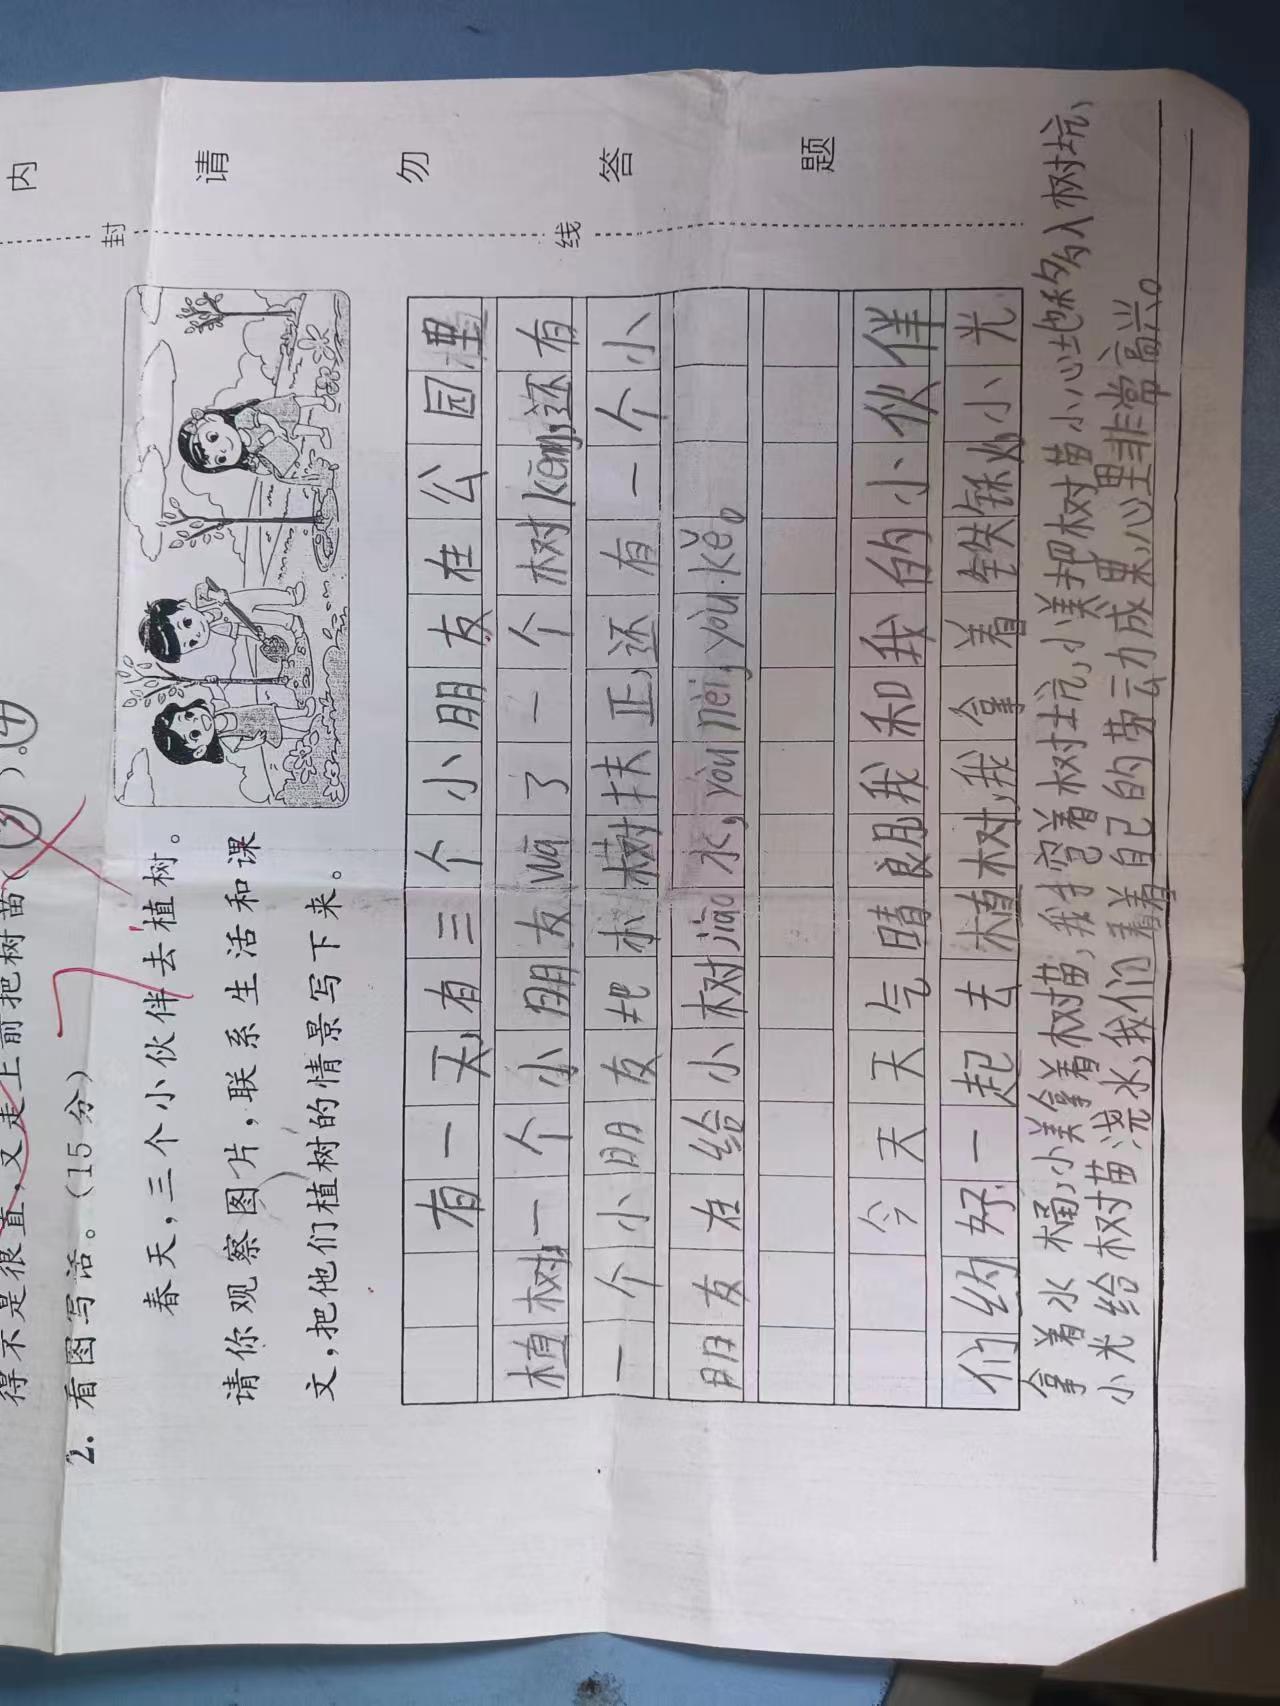 得不是很直，又走上前把树苗（③）。④
2. 看图写话。（15 分）
春天，三个小伙伴去植树。
请你观察图片，联系生活和课
文，把他们植树的情景写下来。
有一天，有三个小朋友在公园里
植树，一个小朋友wā了一个树kēng，还有
一个小朋友地小树扶正，还有一个小
朋友在给小树jiāo水，yòu nèi，yòu kě。
今天天气晴朗我和我的小伙伴
们约好一起去植树，我拿着铁锹，小光
拿着水桶，小美拿着树苗，我挖着树坑，小美把树苗小心地移入树坑，
小光给树苗浇水，我们看着自己的劳动成果，心里非常高兴。
内
封
请
勿
线
答
题